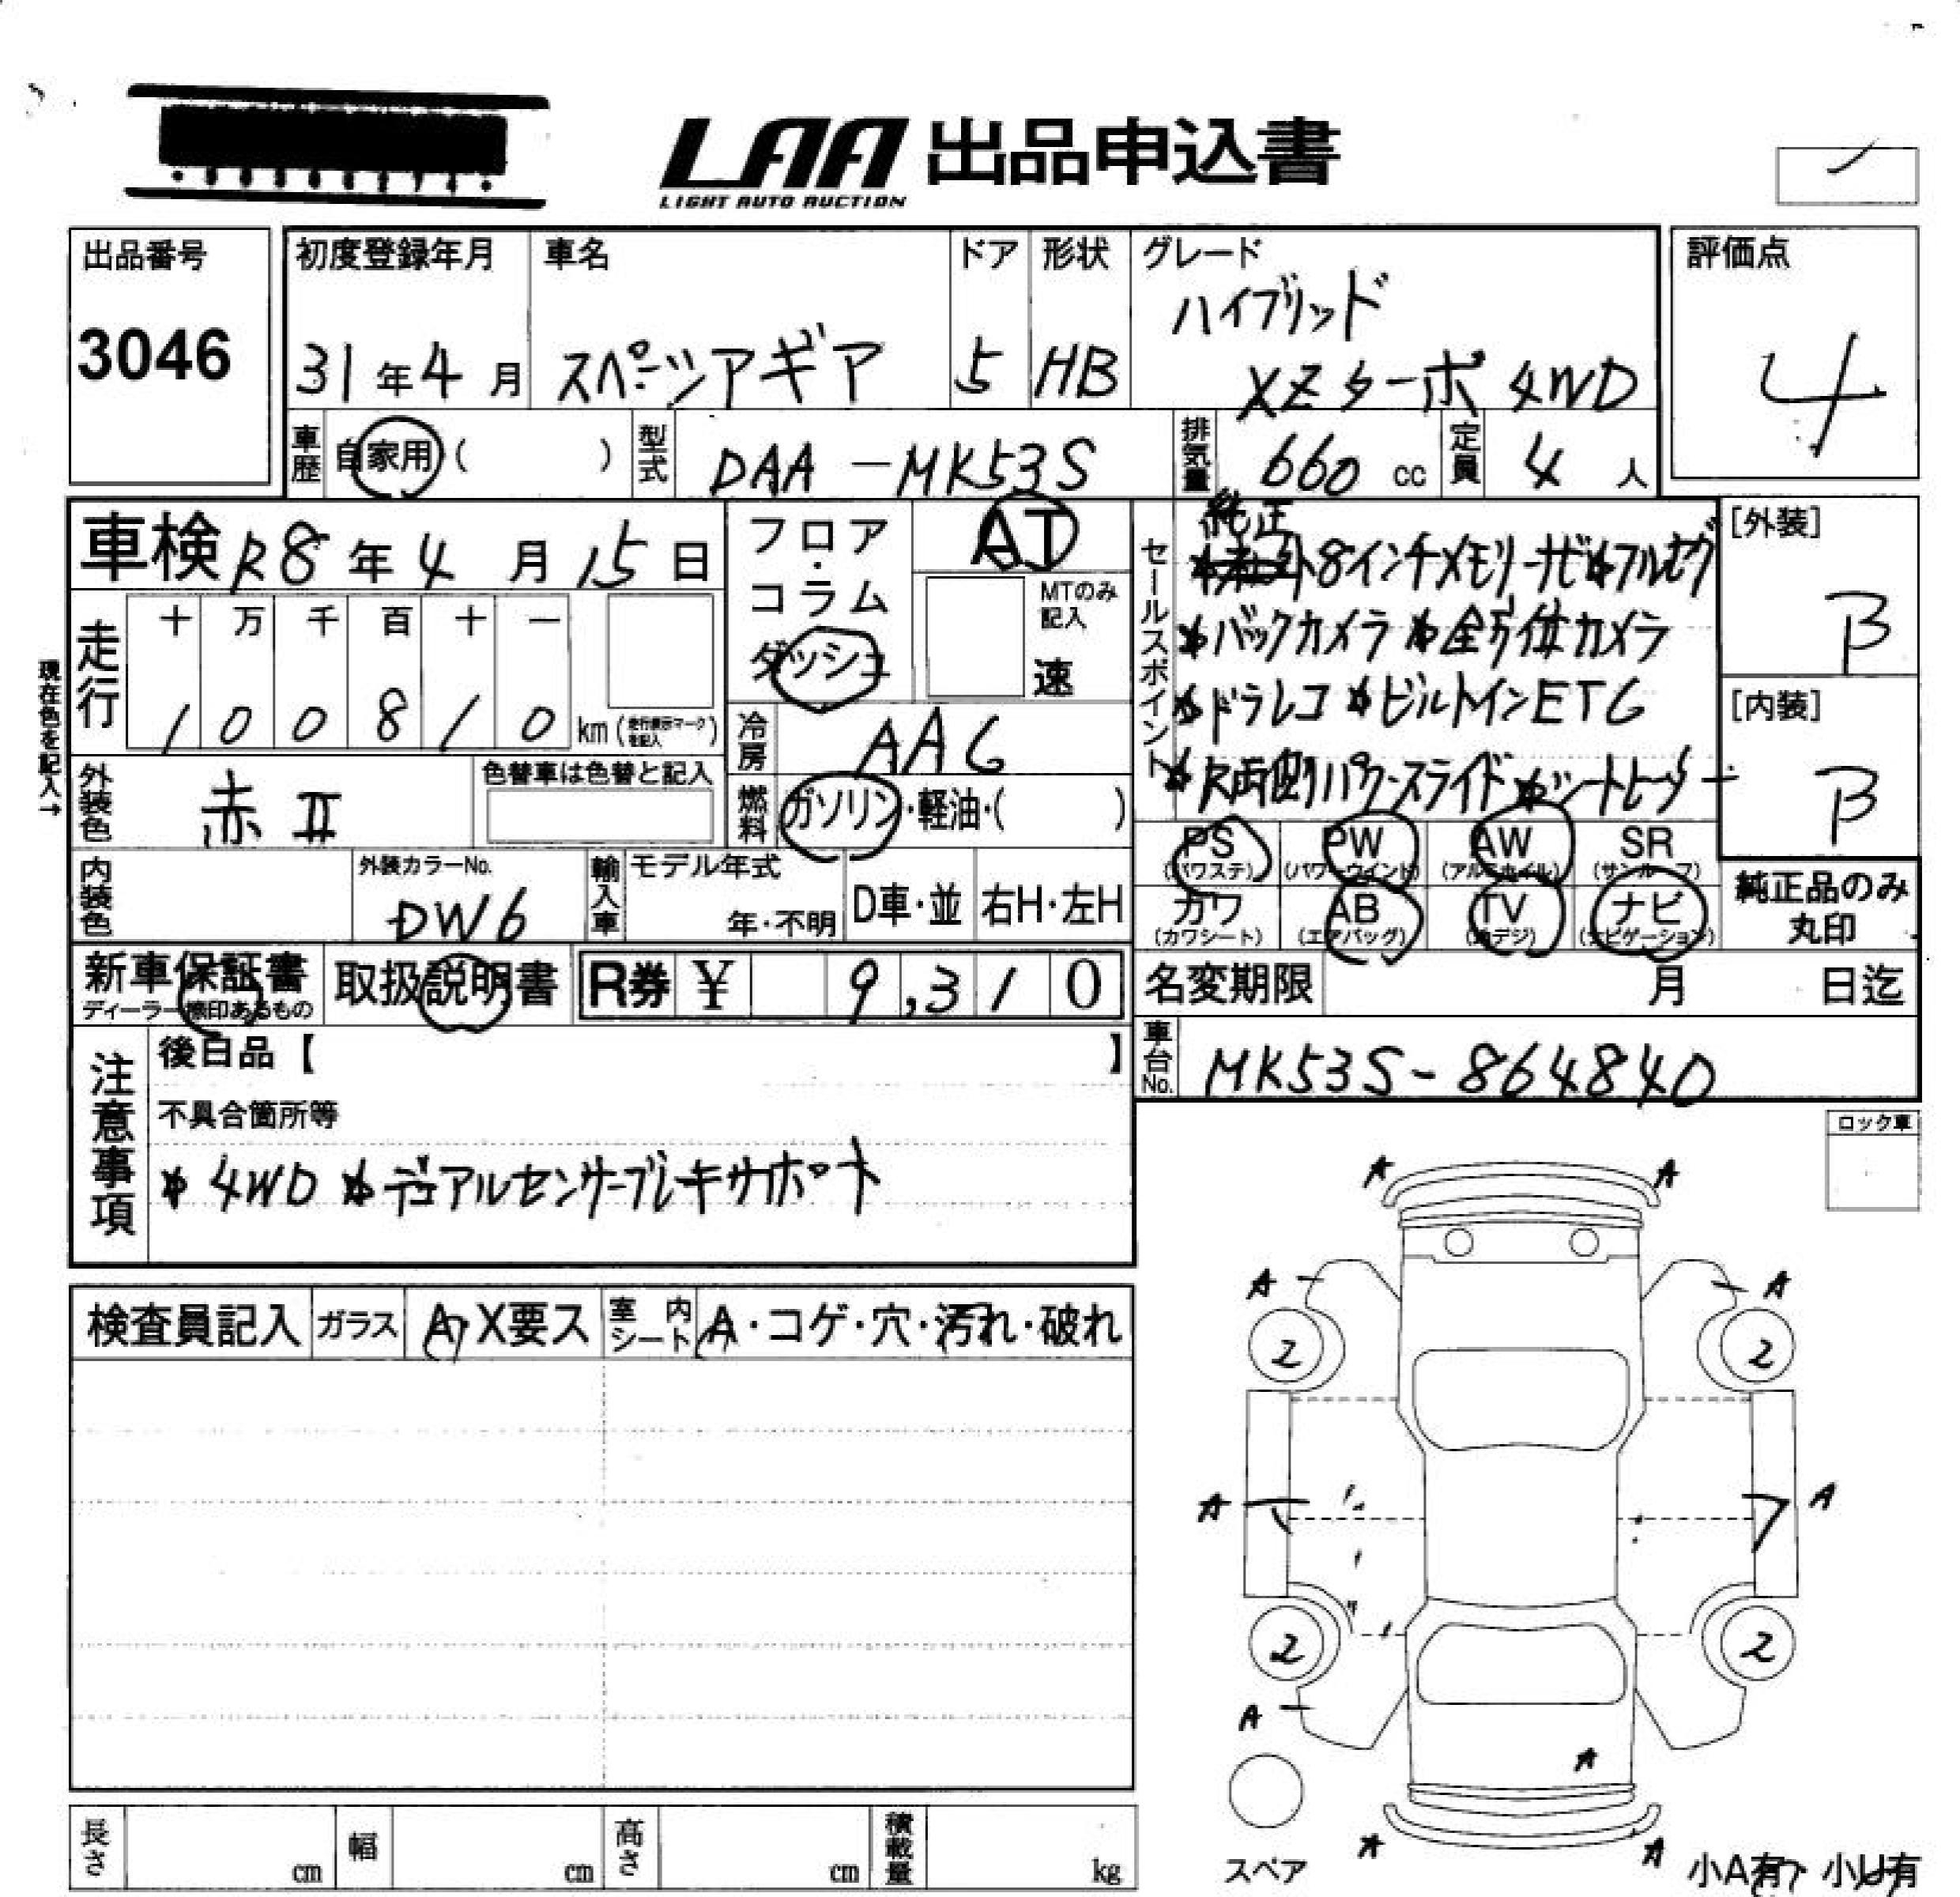 LAA 出品申込書
LIGHT AUTO AUCTION
出品番号
3046
初度登録年月
31年4月
車名
スペーシアギア
ドア
5
形状
HB
グレード
ハイブリッド
XZターボ 4WD
評価点
4
車歴 自家用( )
型式 DAA-MK53S
排気量 660 cc
定員 4人
車検 R8年4月15日
フロア・コラム
ダッシュ
AT
MTのみ記入
速
走行
十 万 千 百 十 一
1 0 0 8 1 0 km(走行表示マークを記入)
現在色を記入→
冷房 AAC
外装色 赤Ⅱ
色替車は色替と記入
燃料 ガソリン・軽油・( )
内装色
外装カラーNo.
DW6
輸入車
モデル年式
年・不明
D車・並
右H・左H
セールスポイント
純正
8インチメモリーナビ フルセグ
バックカメラ 全方位カメラ
ドラレコ ビルトインETC
両側パワースライド シートヒーター
[外装]
B
[内装]
B
PS
(パワステ)
PW
(パワーウインド)
AW
(アルミホイル)
SR
(サンルーフ)
カワ
(カワシート)
AB
(エアバッグ)
TV
(地デジ)
ナビ
(ナビゲーション)
純正品のみ
丸印
新車保証書
ディーラー捺印あるもの
取扱説明書
R券 ¥ 9,310
名変期限 月 日迄
車台No. MK53S-864840
注意事項
後日品【 】
不具合箇所等
4WD デュアルセンサーブレーキサポート
ロック車
検査員記入
ガラス
A・X要ス
室内シート
A・コゲ・穴・汚れ・破れ
A A
A A
2 2
A A
2 2
A
A
A A
スペア
小A有 小U有
長さ cm
幅 cm
高さ cm
積載量 kg